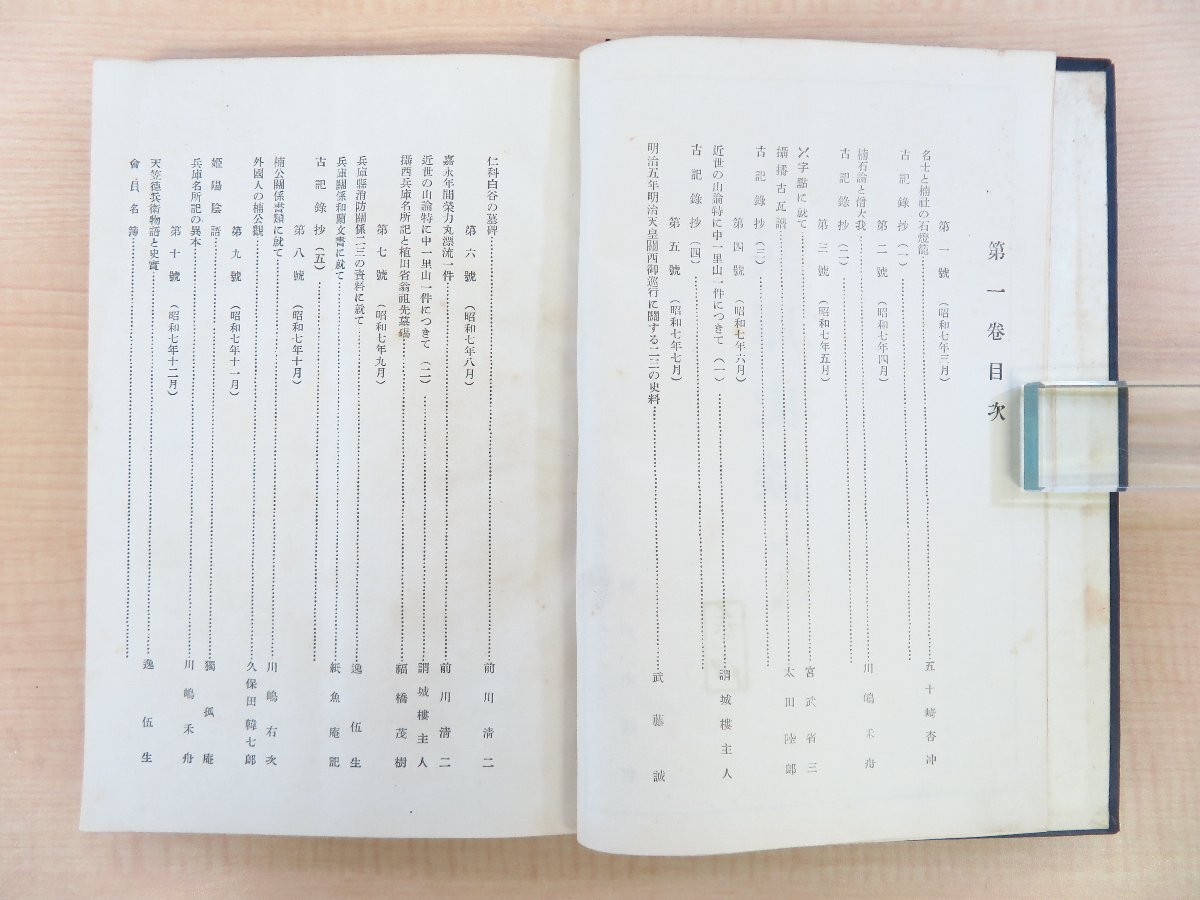 第一卷目次
第一號 (昭和七年三月)
名士と楠社の石燈籠……五十崎杏冲
古記錄抄(一)……
第二號 (昭和七年四月)
楠石論と僧大我……川嶋禾舟
古記錄抄(二)……
第三號 (昭和七年五月)
乄字點に就て……宮武省三
攝播古瓦譜……太田陸郎
古記錄抄(三)……
第四號 (昭和七年六月)
近世の山論特に中一里山一件につきて(一)……謂城樓主人
古記錄抄(四)……
第五號 (昭和七年七月)
明治五年明治天皇關西御巡行に關する二三の史料……武藤誠
仁科白谷の墓碑……前川淸二
第六號 (昭和七年八月)
嘉永年間榮力丸漂流一件……前川淸二
近世の山論特に中一里山一件につきて(二)……謂城樓主人
攝西兵庫名所記と植田省翁祖先墓碣……福橋茂樹
第七號 (昭和七年九月)
兵庫縣消防關係二三の資料に就て……逸伍生
兵庫關係和蘭文書に就て……紙魚庵記
古記錄抄(五)……
第八號 (昭和七年十月)
楠公關係書類に就て……川嶋右次
外國人の楠公觀……久保田韓七郞
第九號 (昭和七年十一月)
姬陽陰語……獨孤庵
兵庫名所記の異本……川嶋禾舟
第十號 (昭和七年十二月)
天竺德兵衞物語と史實……逸伍生
會員名簿……